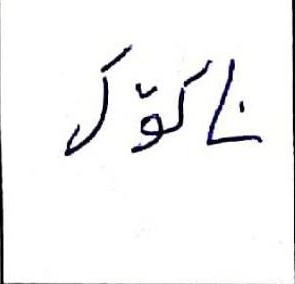 ناکۆک